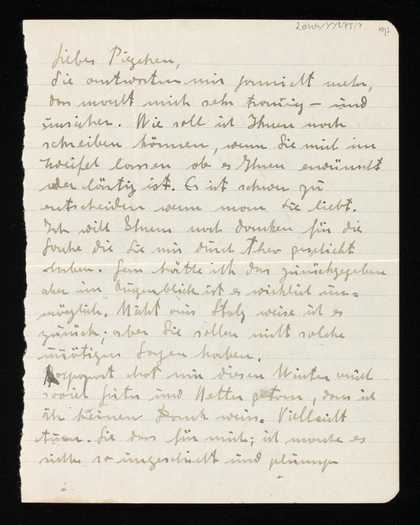 Liebes Piezchen,
Sie antworten mir garnicht mehr,
das macht mich sehr traurig – und
unsicher. Wie soll ich Ihnen noch
schreiben können, wenn Sie mich im
Zweifel lassen ob es Ihnen erwünscht
oder lästig ist. Es ist schwer zu
entscheiden wenn man Sie liebt.
Ich will Ihnen noch danken für die
Sache die Sie mir durch Theo geschickt
haben. Gern hätte ich das zurückgegeben
aber im Augenblick ist es wirklich un-
möglich. Nicht aus Stolz weise ich es
zurück; aber Sie sollen nicht solche
unnötigen Sorgen haben.
hat mir diesen Winter auch
soviel Gutes und Nettes getan, dass ich
ihr keinen Dank weiss. Vielleicht
tuen Sie das für mich; ich mache es
sicher so ungeschickt und plump